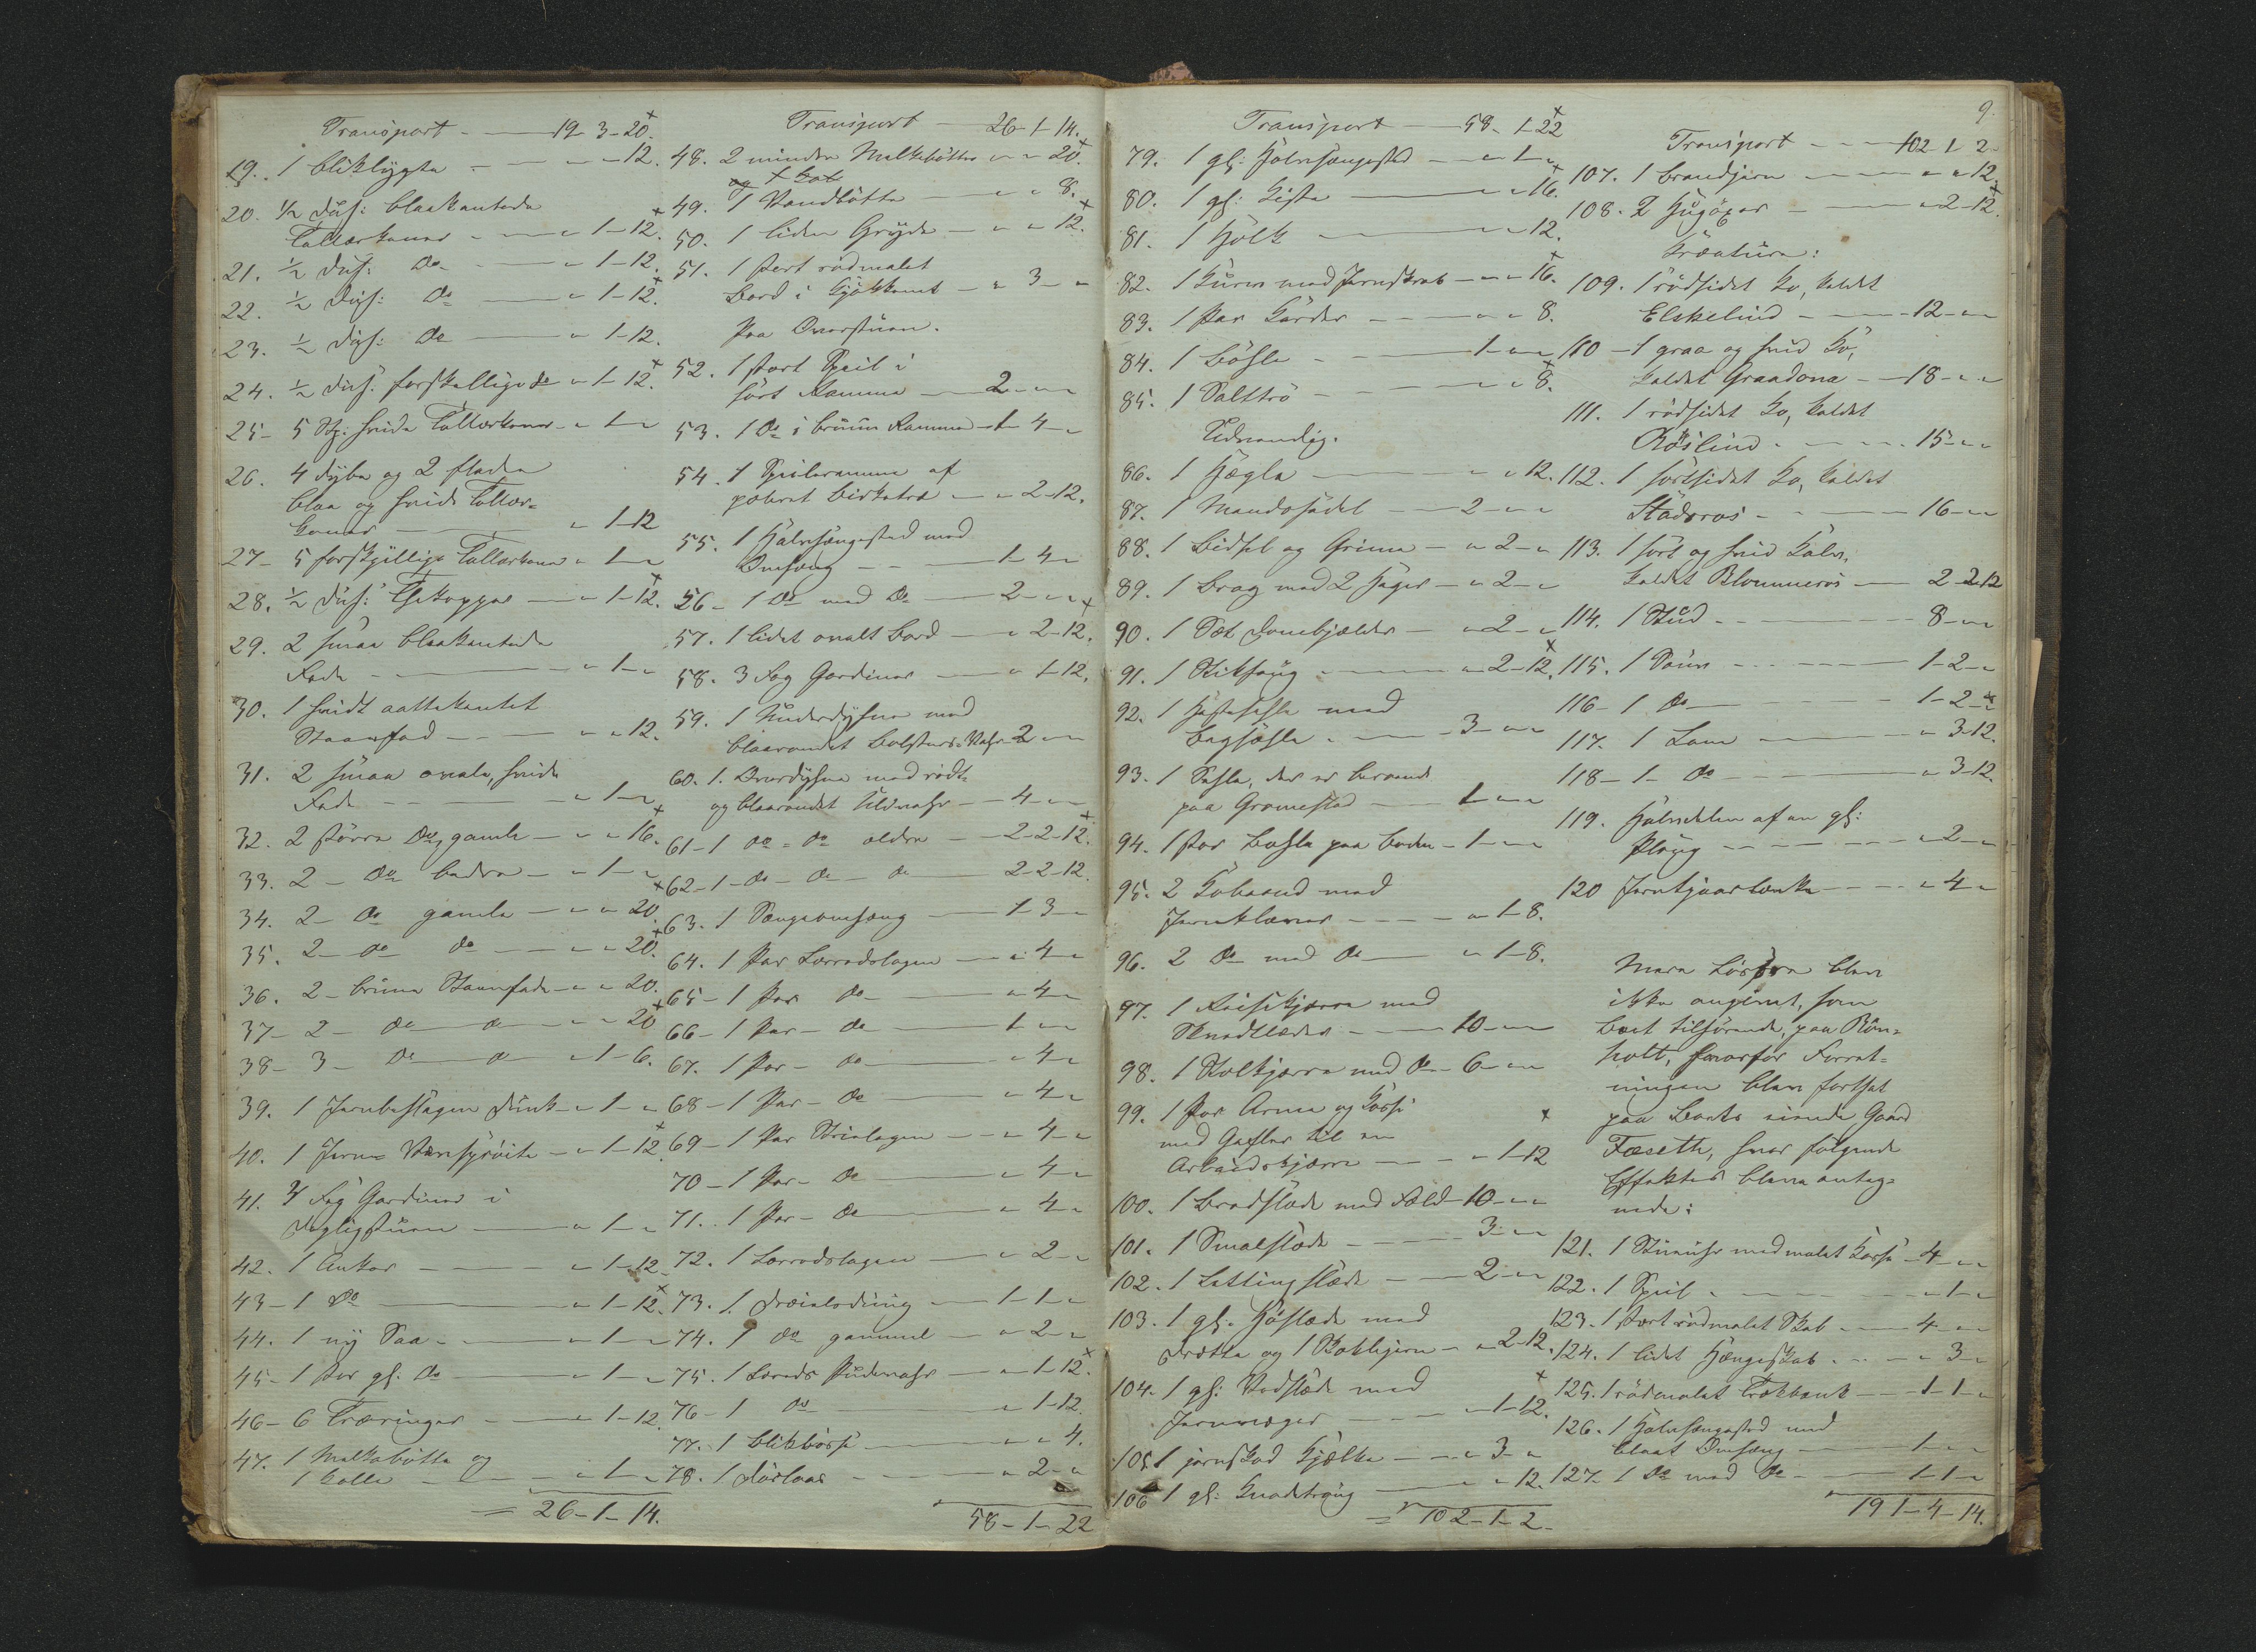 Transport - 19-3-20.
19. 1 bliklygte - " - " - 12.
20. 1/2 Dus: blaakantede
Tallerkener - " 1-12.
21. 1/2 Dus: Do - " 1-12.
22. 1/2 Dus: Do - " 1-12.
23. 1/2 Dus: Do - " 1-12.
24. 1/2 Dus: forskellige do " 1-12.
25- 5 Stk. hvide Tallerkener - " 1 - "
26. 4 dybe og 2 flade
blaa og hvide Taller-
kener - " 1-12
27- 5 forskjellige Tallerkener " 1 - "
28. 1/2 Dus: Thekopper - " 1-12.
29. 2 smaa blaakantede
Fade - " 1 - "
30. 1 hvidt aattekantet
Steenfad - " " 12.
31. 2 smaa ovale, hvide
Fade - " 1 - "
32. 2 større Do, gamle - " " 16.
33. 2 - Do bedre - " 1 - "
34. 2 - Do gamle - " " 20.
35. 2 - do do - " " 20.
36. 2 - brune Steenfade - " " 20.
37- 2 - do do - " " 20
38- 3 - Do do " 1-6.
39. 1 Jernbeslagen Dunk - " 1 - "
40. 1 Jern - Vansprøite - " 1-12.
41. 4 Fag Gardiner i
Dagligstuen - " 1 - "
42. 1 Anker - " 1-12
43- 1 Do - " 1-12.
44. 1 ny Saa - " 1 - "
45- 1 Par gl. Do - " 1 - "
46- 6 Træringer - " 1-12.
47. 1 Melkebøtte og
1 Kolle - " 1 - "
= 26-1-14.
Transport - 26-1-14.
48. 2 mindre Melkebøtter " " 20.
og 1 Kob
49. 1 Vandbøtte - " " 8.
50. 1 liden Gryde - " " 12.
51. 1 stort rødmalet
Bord i Kjøkkenet - " 3 - "
Paa Overstuen.
52. 1 stort Speil i
sort Ramme - 2 - " "
53. 1 Do i bruun Ramme - 1-4 - "
54. 1 Speilramme af
poleret Birketræ - " 2-12.
55. 1 Halvsængested med
Omhæng - 1-4 - "
56- 1 Do med Do - 2 - " "
57. 1 lidet ovalt Bord - " 2-12.
58. 3 Fag Gardiner - " 1-12.
59. 1 Underdyne med
blaarandet Bolster-Vahr - 2 - " "
60. 1. Overdyne med rødt-
og blaarandet Uldvahr - 4 - " "
61- 1 do - do ældre - 2-2-12.
62- 1 - do - do - do - 2-2-12.
63. 1 Sengeomhæng - 1-3 - "
64. 1 Par Lærredslagen - " 4 - "
65- 1 Par do - " 4 - "
66- 1 Par - do - 1 - " "
67. 1 Par - do - " 4 - "
68- 1 Par - Do - " 4 - "
69- 1 Par Strielagen - " 4 - "
70- 1 Par - Do - " 4 - "
71. 1 Par - Do - " 4 - "
72. 1 Lærredslagen - " 2 - "
73. 1. Dræielsduug - 1-1 - "
74. 1 do gammel - " 2 - "
75. 1 Lærreds Pudevahr - " 1-12.
76- 1 do - " 1-12.
77. 1 Blikbøsse - " " 4.
78. 1 Dørlaas - " 2 - "
58-1-22
Transport - 58-1-22
79. 1 gl: Halvsængested - " 1 - "
80. 1 gl: Kiste - " " 16.
81. 1 Holk - " " 12.
82. 1 Kurv med Jernskrab - " " 16.
83. 1 Par Karder - " " 8.
84. 1 Bøsle - 1 - " "
85. 1 Salttrø - " " 8.
Udvendig.
86. 1 Hægle - " " 12.
87. 1 Mandssadel - 2 - " "
88. 1 Bidsel og Grime - " 2 - "
89. 1 Brag med 2 Hager - " 2 - "
90. 1 Sæt Dombjælder - " 2 - "
91. 1 Stiksaug - " 2-12.
92. 1 Hestesæle med
bagsæle - 3 - " "
93. 1 Sæle, der er beroende
paa Gromestad - 1 - " "
94. 1 Par Bøsle paa Boden - 1 - " "
95. 2 Kobaand med
Jernklaver - " 1-8.
96. 2 Do med Do - " 1-8.
97. 1 Reisekjærre med
Skvedlæder - 10 - " "
98. 1 Stolkjærre med do - 6 - " "
99. 1 Par Arme og Kasse
med Gafler til en
Arbeidskjærre - " 1-12
100. 1 Bredslæde med Fæld - 10 - " "
101. 1 Smalslæde - 3 - " "
102. 1 Lettingslæde - 2 - " "
103. 1 gl. Høslæde med
Drætte og 1 Stokkjern - " 2-12.
104. 1 gl: Vedslæde med
Jernmeger - " 1-12.
105. 1 jernskod Kjælke - " 3 - "
106 1 gl: Knadetraug - " " 12.
= 102-1-2.
9.
Transport - 102-1-2.
107. 1 Brandjern - " " 12.
108. 2 Hugøxer - " 2-12.
Kreature:
109. 1 rødsidet Ko, kaldet
Elskelind - 12 - " "
110 - 1 graa og hvid Ko,
kaldet Graadona - 18 - " "
111. 1 rødsidet Ko, kaldet
Røslind - 15 - " "
112. 1 sortsidet Ko, kaldet
Stadsros - 16 - " "
113. 1 sort og hvid Kalv,
kaldet Blommeros - 2-2-12
114. 1 Stud - 8 - " "
115. 1 Souv - 1-2 - "
116- 1 do - 1-2 - "
117. 1 Lam - " 3-12.
118- 1 - do - " 3-12.
119. Halvdelen af en gl:
Ploug - " 2 - "
120 Jerntjuarlænke - " 4 - "
Mere Løsøre blev
ikke angivet, som
Boet tilhørende, paa Røn-
holt, hvorfor Forret-
ningen blev fortsat
paa Boets eiende Gaard
Fæseth, hvor følgende
Effekter bleve anteg-
nede:
121. 1 Stueuhr med malet Kasse - 4 - " "
122. 1 Speil - " 1 - "
123. 1 stort rødmalet Skab - 4 - " "
124. 1 lidet Hængeskab - " 3 - "
125. 1 rødmalet Trækbænk - 1-1 - "
126. 1 Halvsængested med
blaat Omhæng - 1 - " "
127. 1 Do med do - 1-1 - "
191-4-14.